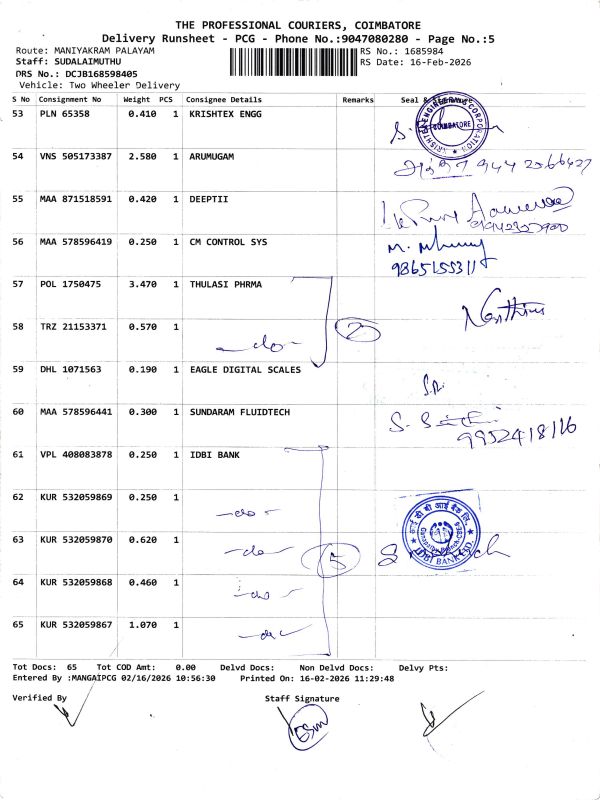 THE PROFESSIONAL COURIERS, COIMBATORE
Delivery Runsheet - PCG - Phone No.:9047080280 - Page No.:5
Route: MANIYAKRAM PALAYAM RS No.: 1685984
Staff: SUDALAIMUTHU RS Date: 16-Feb-2026
DRS No.: DCJB168598405
Vehicle: Two Wheeler Delivery
S No Consignment No Weight PCS Consignee Details Remarks Seal & Signature
53 PLN 65358 0.410 1 KRISHTEX ENGG
COIMBATORE
54 VNS 505173387 2.580 1 ARUMUGAM
55 MAA 871518591 0.420 1 DEEPTII
56 MAA 578596419 0.250 1 CM CONTROL SYS
57 POL 1750475 3.470 1 THULASI PHRMA
58 TRZ 21153371 0.570 1 -do- 2
59 DHL 1071563 0.190 1 EAGLE DIGITAL SCALES
60 MAA 578596441 0.300 1 SUNDARAM FLUIDTECH
9952418116
61 VPL 408083878 0.250 1 IDBI BANK
62 KUR 532059869 0.250 1 -do-
63 KUR 532059870 0.620 1 -do- 5
IDBI BANK LTD.
64 KUR 532059868 0.460 1 -do-
65 KUR 532059867 1.070 1 -do-
Tot Docs: 65 Tot COD Amt: 0.00 Delvd Docs: Non Delvd Docs: Delvy Pts:
Entered By :MANGAIPCG 02/16/2026 10:56:30 Printed On: 16-02-2026 11:29:48
Verified By Staff Signature